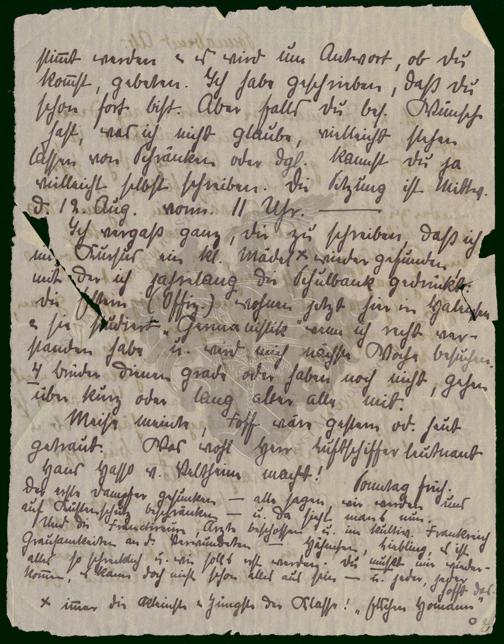 stimmt werden u. es wird um Antwort, ob du
kommst, gebeten. Ich habe geschrieben, daß du
schon fort bist. Aber falls du bes. Wünsche
hast, was ich nicht glaube, vielleicht stehen
lassen von Schränken oder dgl. kannst du ja
vielleicht selbst schreiben. Die Sitzung ist Mittw.
d. 12. Aug. vorm. 11 Uhr.
Ich vergaß ganz, dir zu schreiben, daß ich
im Kursus ein kl. Mädel x wieder gefunden
mit der ich jahrelang die Schulbank gedrückt.
Die Eltern (Offiz.) wohnen jetzt hier in
u. sie studiert "Germanistik" wenn ich recht ver-
standen habe u. wird mich nächste Woche besuchen.
4 Brüder dienen grade oder haben noch nicht, gehen
über kurz oder lang aber alle mit.
Meise meinte, wäre gestern od. heut
getraut. Was wohl Herr Luftschiffer leutnant
Hans Hasso v. Veltheim macht!
Sonntag früh.
Der erste Dampfer gesunken — alle sagen wir werden uns
auf Küstenschutz beschränken — u. da sieht man's nun.
Und die Ärzte beschossen u. im Frankreich
Grausamkeiten an d. Verwundeten — Liebling, es ist
alles so schrecklich u. wie soll's erst werden. Du mußt mir wieder-
kommen, es kann doch nicht schon alles aus sein — u. jeder, jeder
hofft das.
x immer die Kleinste u. Jüngste der Klasse!